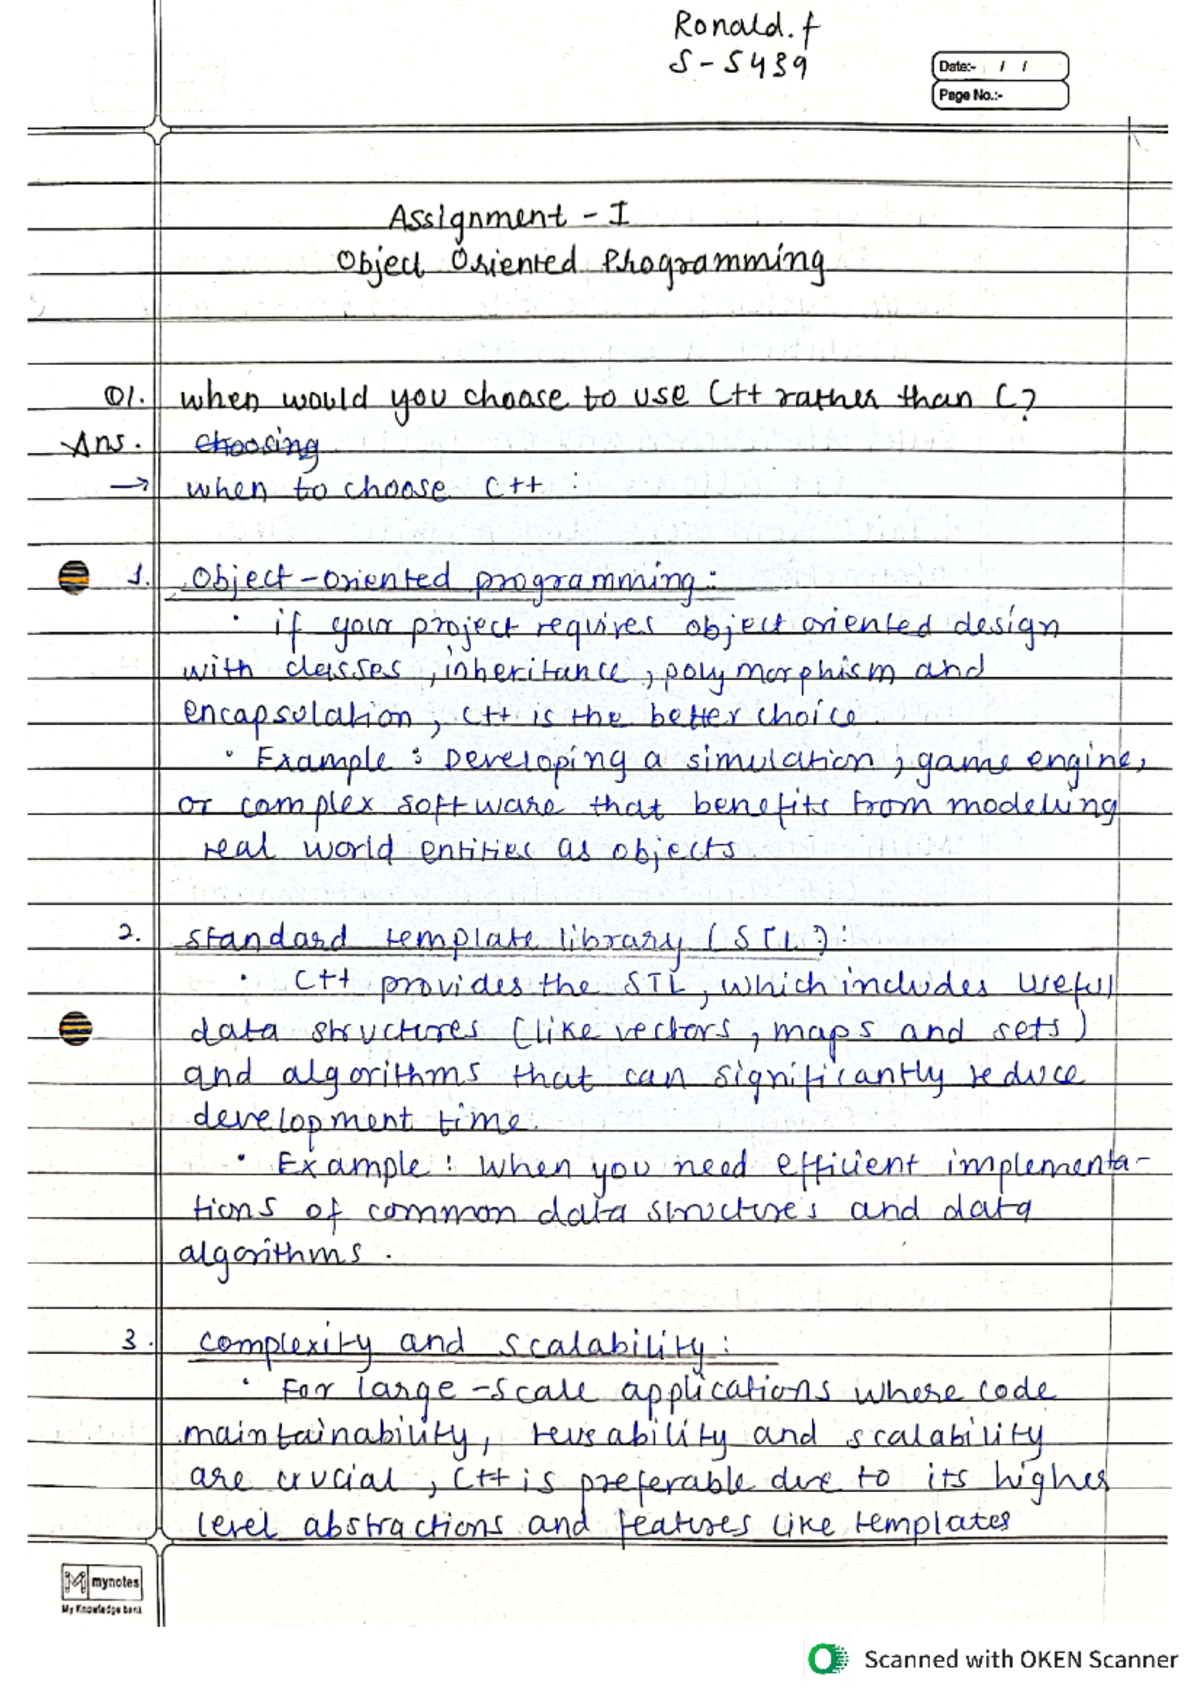 Ronald.f
S-5439
Date:- / /
Page No.:-
Assignment - I
Object Oriented Programming
Q1. when would you choose to use C++ rather than C?
Ans. choosing
→ when to choose C++ :
1. Object-oriented programming:
• if your project requires object oriented design
with classes, inheritance, polymorphism and
encapsulation, C++ is the better choice.
• Example : Developing a simulation, game engine,
or complex software that benefits from modeling
real world entities as objects
2. standard template library (STL):
• C++ provides the STL, which includes useful
data structures (like vectors, maps and sets)
and algorithms that can significantly reduce
development time.
• Example : when you need efficient implementa-
tions of common data structures and data
algorithms.
3. complexity and scalability:
• For large-scale applications where code
maintainability, reusability and scalability
are crucial, C++ is preferable due to its higher
level abstractions and features like templates
M mynotes
My Knowledge bank
Scanned with OKEN Scanner